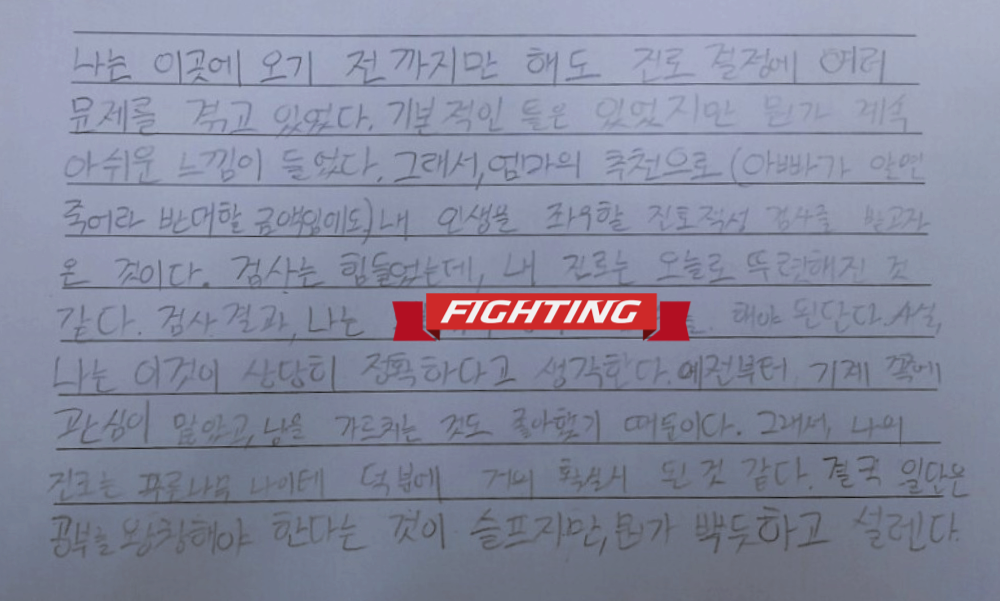 나는 이곳에 오기 전까지만 해도 진로 결정에 여러
문제를 겪고 있었다. 기본적인 틀은 있었지만 뭔가 계속
아쉬운 느낌이 들었다. 그래서, 엄마의 추천으로 (아빠가 알면
죽어라 반대할 금액임에도) 내 인생을 좌우할 진로적성 검사를 받고자
온 것이다. 검사는 힘들었는데, 내 진로는 오늘로 뚜렷해진 것
같다. 검사 결과, 나는 FIGHTING 해야 된단다. 사실,
나는 이것이 상당히 정확하다고 생각한다. 예전부터 기계 쪽에
관심이 많았고, 남을 가르치는 것도 좋아했기 때문이다. 그래서, 나의
진로는 덕분에 거의 확실시 된 것 같다. 결국 일단은
공부를 왕창해야 한다는 것이 슬프지만, 뭔가 뿌듯하고 설렌다.